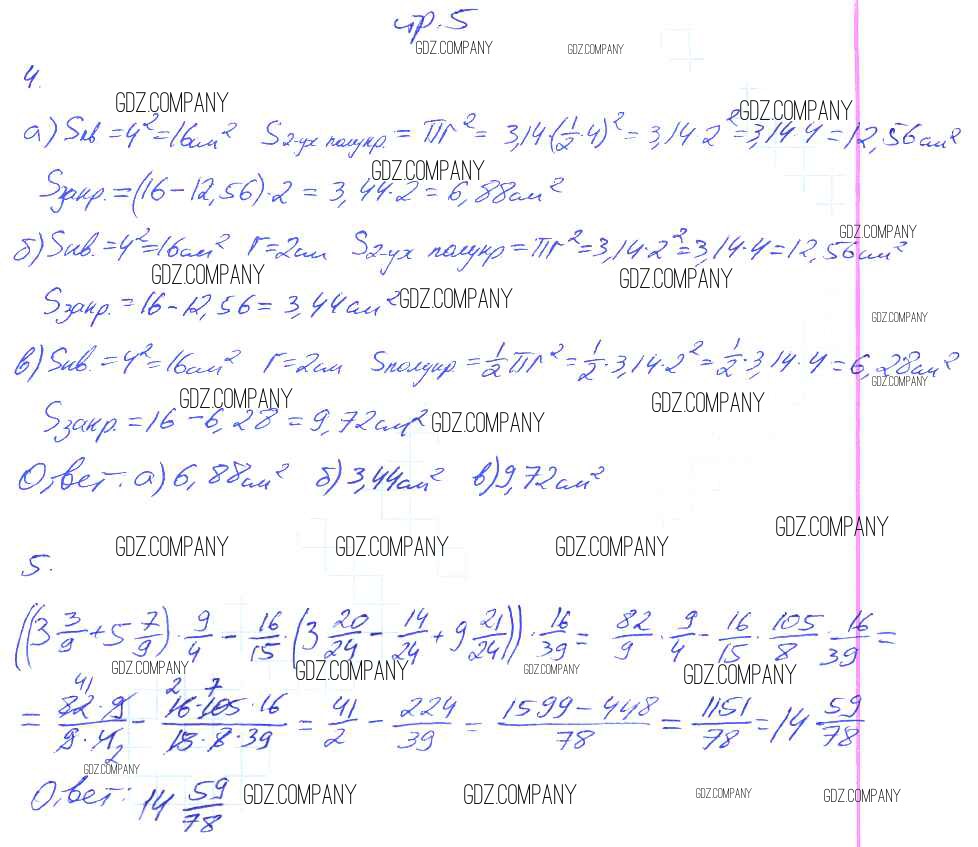 стр. 5
GDZ.COMPANY GDZ.COMPANY
4.
GDZ.COMPANY GDZ.COMPANY
а) Sкв = 4² = 16см² S2-ух полукр. = πr² = 3,14·(1/2·4)² = 3,14·2² = 3,14·4 = 12,56см²
GDZ.COMPANY
Sзакр. = (16 - 12,56)·2 = 3,44·2 = 6,88см²
GDZ.COMPANY
б) Sкв. = 4² = 16см² r = 2см S2-ух полукр = πr² = 3,14·2² = 3,14·4 = 12,56см²
GDZ.COMPANY GDZ.COMPANY
Sзакр. = 16 - 12,56 = 3,44см² GDZ.COMPANY
GDZ.COMPANY
в) Sкв. = 4² = 16см² r = 2см Sполукр = 1/2 πr² = 1/2·3,14·2² = 1/2·3,14·4 = 6,28см²
GDZ.COMPANY GDZ.COMPANY GDZ.COMPANY
Sзакр. = 16 - 6,28 = 9,72см² GDZ.COMPANY
Ответ: а) 6,88см² б) 3,44см² в) 9,72см²
GDZ.COMPANY
GDZ.COMPANY GDZ.COMPANY GDZ.COMPANY
5.
((3 3/9 + 5 7/9)·9/4 - 16/15·(3 20/24 - 14/24 + 9 21/24))·16/39 = 82/9·9/4 - 16/15·105/8·16/39 =
GDZ.COMPANY GDZ.COMPANY GDZ.COMPANY GDZ.COMPANY
41 2 7
= 82·9/9·4 - 16·105·16/15·8·39 = 41/2 - 224/39 = 1599-448/78 = 1151/78 = 14 59/78
2
GDZ.COMPANY
Ответ: 14 59/78 GDZ.COMPANY GDZ.COMPANY GDZ.COMPANY GDZ.COMPANY